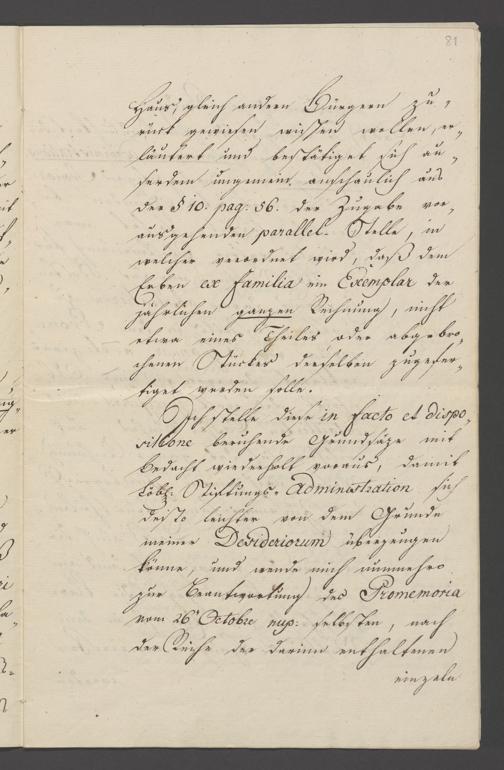 81
Haus, gleich andern Bürgern zu-
rück gewiesen wissen wollen, er-
läutert und bestätiget sich au-
serdem ungemein anschaulich aus
der § 10: pag: 56. der Zugabe vor-
ausgehenden parallel-Stelle, in
welcher verordnet wird, daß dem
Erben ex familia ein Exemplar der
jährlichen ganzen Rechnung, nicht
etwa eines Theiles oder abgebro-
chenen Stückes derselben zugefer-
tiget werden solle.
Ich stelle diese in facto et dispo-
sitione beruhende Grundsäze mit
Bedacht wiederholt voraus, damit
Löbl: Stiftungs-Administration sich
desto leichter von dem Grunde
meiner Desideriorum überzeugen
könne, und wende mich nunmehro
zur Beantwortung des Promemoria
vom 26 Octobre nup: selbsten, nach
der Reihe der darinn enthaltenen
einzeln